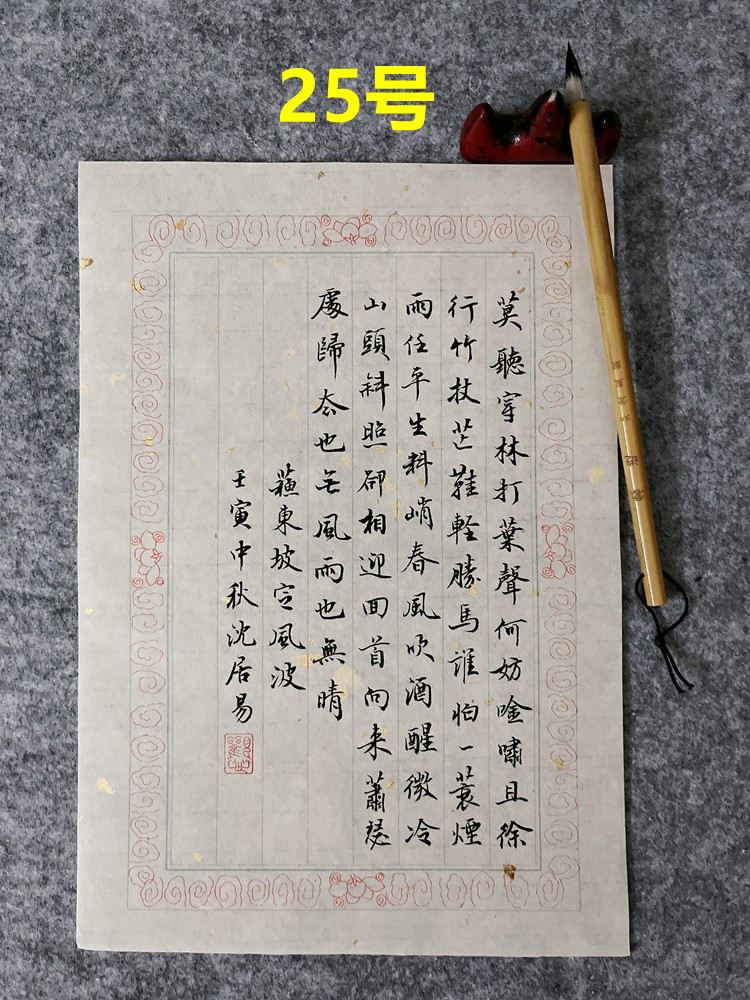 25号
莫聽穿林打葉聲何妨唫嘯且徐
行竹杖芒鞋輕勝馬誰怕一蓑煙
雨任平生料峭春風吹酒醒微冷
山頭斜照郤相迎回首向来蕭瑟
處歸去也无風雨也無晴
蘇東坡定風波
壬寅中秋沈居易